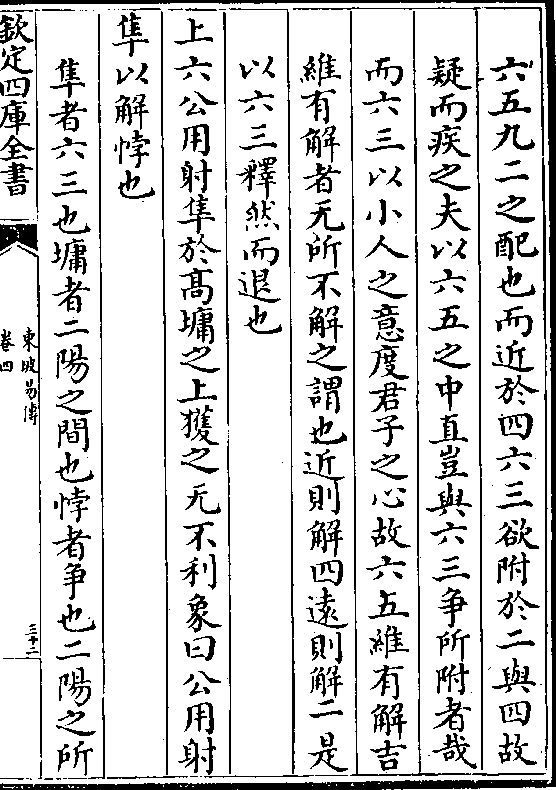 六五九二之配也而近於四六三欲附於二與四故
疑而疾之夫以六五之中直豈與六三爭所附者哉
而六三以小人之意度君子之心故六五維有解吉
維有解者无所不解之謂也近則解四遠則解二是
以六三釋然而退也
上六公用射隼於髙墉之上獲之无不利象曰公用射
隼以解悖也
隼者六三也墉者二陽之間也悖者爭也二陽之所
欽定四庫全書
東坡易傳
卷四
三十二